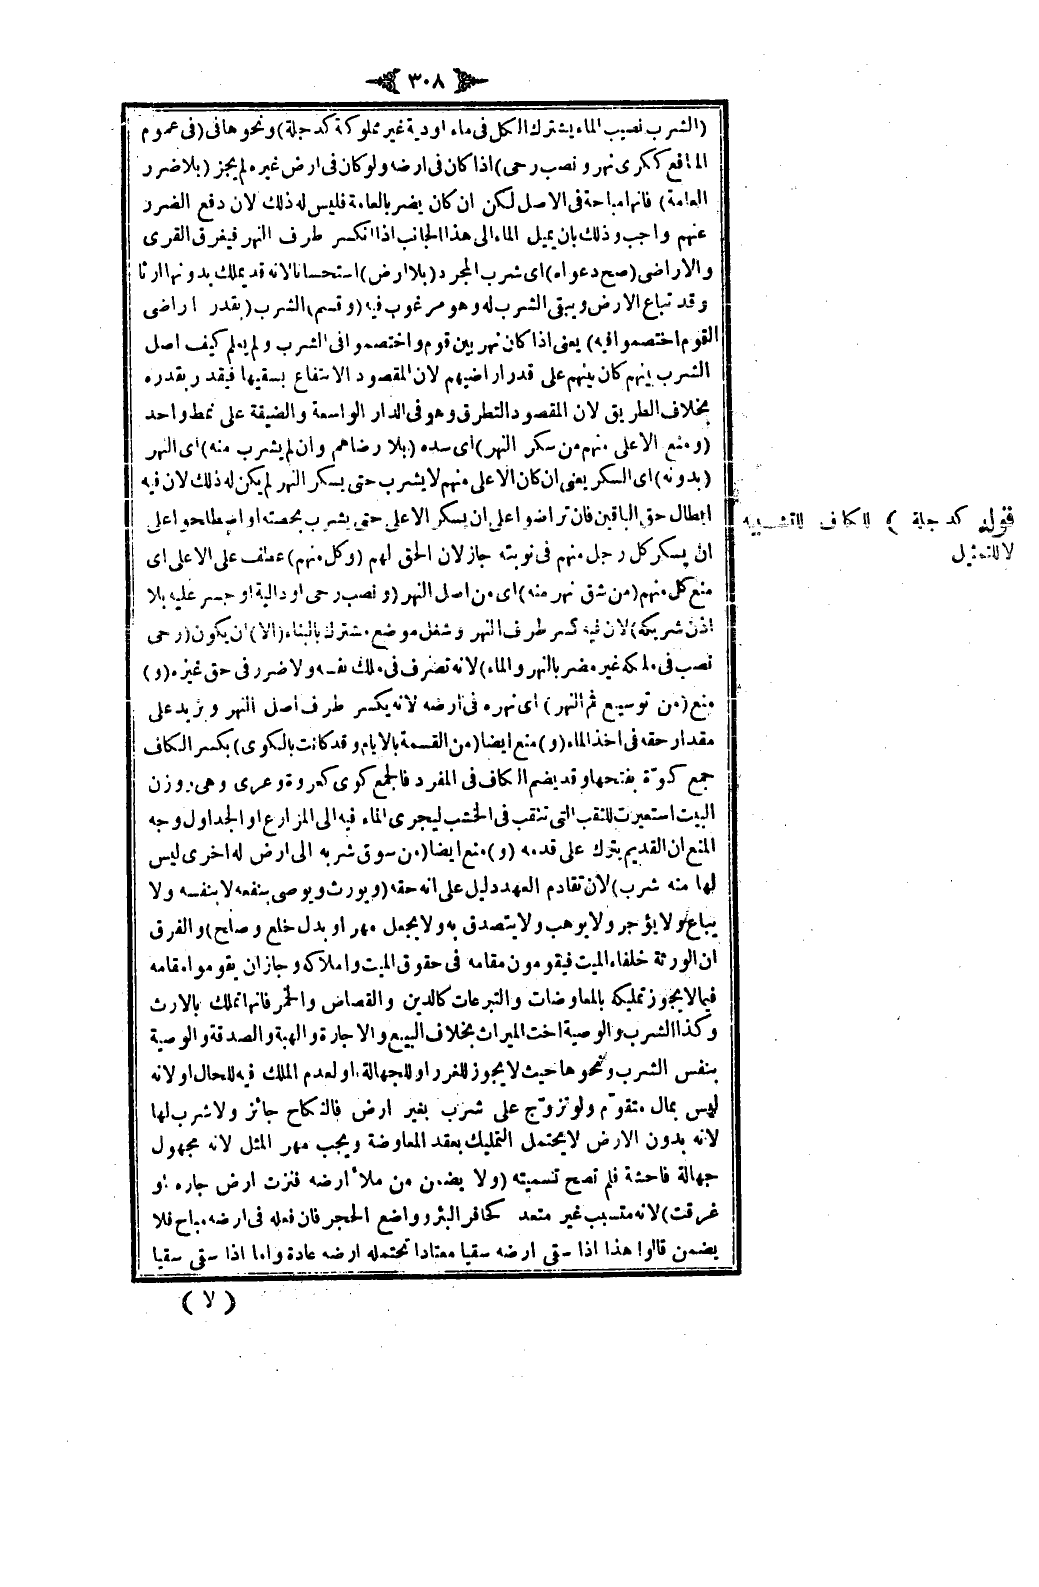 ٣٠٨
(الشرب نصيب الماء يشترك الكل فى ماء اودية غير مملوكة كدجلة) ونحوها فى (فى عموم
المنافع ككرى نهر ونصب رحى) اذا كان فى ارضه ولو كان فى ارض غيره لم يجز (بلا ضرر
العامة) فانها مباحة فى الاصل لكن ان كان يضر بالعامة فليس له ذلك لان دفع الضرر
عنهم واجب وذلك بان يميل الماء الى هذا الجانب اذا انكسر طرف النهر فيغرق القرى
والاراضى (صح دعواه) اى شرب المجرد (بلا ارض) استحسانا لانه قد يملك بدونها ارثا
وقد تباع الارض ويبقى الشرب له وهو مرغوب فيه (وقسم) الشرب (بقدر اراضى
القوم اختصموا فيه) يعنى اذا كان نهر بين قوم واختصموا فى الشرب ولم يعلم كيف اصل
الشرب بينهم كان بينهم على قدر اراضيهم لان المقصود الانتفاع بسقيها فيقدر بقدره
بخلاف الطريق لان المقصود التطرق وهو فى الدار الواسعة والضيقة على نمط واحد
(ومنع الاعلى منهم من سكر النهر) اى سده (بلا رضاهم وان لم يشرب منه) اى النهر
(بدونه) اى السكر يعنى ان كان الاعلى منهم لا يشرب حتى يسكر النهر لم يكن له ذلك لان فيه
ابطال حق الباقين فان تراضوا على ان يسكر الاعلى حتى يشرب بحصته او اصطلحوا على
ان يسكر كل رجل منهم فى نوبته جاز لان الحق لهم (وكل منهم) عطف على الاعلى اى
منع كل منهم (من شق نهر منه) اى من اصل النهر (ونصب رحى او دالية او جسر عليه بلا
اذن شريكه) لان فيه كسر طرف النهر وشغل موضع مشترك بالبناء (الا) ان يكون (رحى
نصب فى ملكه غير مضر بالنهر والماء) لانه تصرف فى ملك نفسه ولا ضرر فى حق غيره (و)
منع (من توسيع فم النهر) اى نهره فى ارضه لانه يكسر طرف اصل النهر ويزيد على
مقدار حقه فى اخذ الماء (و) منع ايضا (من القسمة بالايام وقد كانت بالكوى) بكسر الكاف
جمع كوّة بفتحها وقد يضم الكاف فى المفرد فالجمع كوى كعروة وعرى وهى روزن
البيت استعيرت للثقب التى تثقب فى الخشب ليجرى الماء فيه الى المزارع او الجداول وجه
المنع ان القديم يترك على قدمه (و) منع ايضا (من سوق شربه الى ارض له اخرى ليس
لها منه شرب) لان تقادم العهد دليل على انه حقه (ويورث ويوصى بنفعه لا بنفسه ولا
يباع ولا يؤجر ولا يوهب ولا يتصدق به ولا يجعل مهر او بدل خلع وصلح) والفرق
ان الورثة خلفاء الميت فيقومون مقامه فى حقوق الميت واملاكه وجاز ان يقوموا مقامه
فيما لا يجوز تمليكه بالمعاوضات والتبرعات كالدين والقصاص والخمر فانها تملك بالارث
وكذا الشرب والوصية اخت الميراث بخلاف البيع والاجارة والهبة والصدقة والوصية
بنفس الشرب ونحوها حيث لا يجوز للغرر او للجهالة او لعدم الملك فيه للحال او لانه
ليس بمال متقوّم ولو تزوّج على شرب بغير ارض فالنكاح جائز ولا شرب لها
لانه بدون الارض لا يحتمل التمليك بعقد المعاوضة ويجب مهر المثل لانه مجهول
جهالة فاحشة فلم تصح تسميته (ولا يضمن من ملأ ارضه فنزت ارض جاره او
غرقت) لانه متسبب غير متعد كحافر البئر وواضع الحجر فان فعله فى ارضه مباح فلا
يضمن قالوا هذا اذا سقى ارضه سقيا معتادا تحتمله ارضه عادة واما اذا سقى سقيا
( لا )
قوله كدجلة ) الكاف للتشبيه
لا للتمثيل